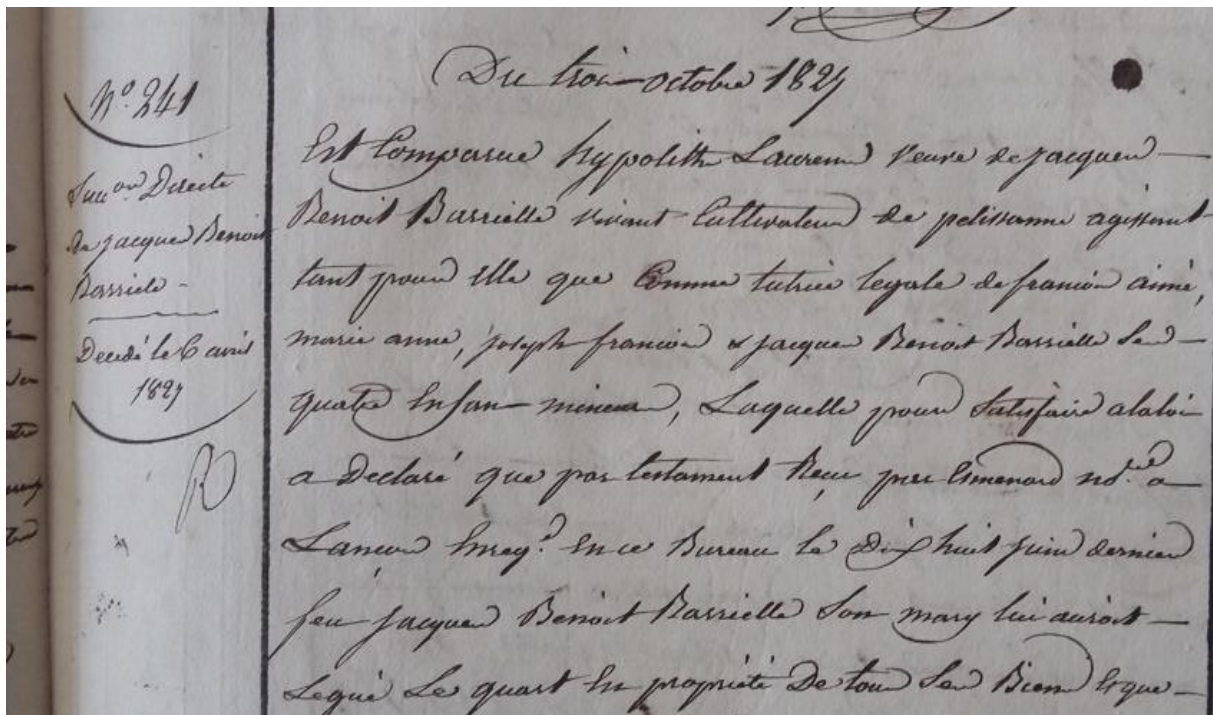 N.º 241
Succ.on Directe
de jacques Benoit
Barrielle
Decedé le 6 avril
1827
Du trois octobre 1827
Est Comparue hypolitte Laurens veuve de jacques
Benoit Barrielle vivant Cultivateur de pelissanne agissant
tant pour elle que Comme tutrice legale de francois aimé,
marie anne, joseph francois & jacques Benoit Barrielle ses
quatre Enfans mineurs, Laquelle pour Satisfaire alaloi
a Declaré que par testament Recu par Emenard no.re a
Lancon Enreg.é En ce Bureau le Dix huit juin dernier
feu jacques Benoit Barrielle Son mary lui auroit
Legué Le quart En propriété De tous Ses Biens Et que